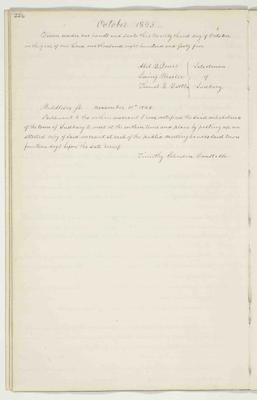 226
October 1845.
Given under our hands and seals this twenty third day of October
in the year of our Lord one thousand eight hundred and forty five.
Abel B. Jones } Selectmen
} of
} Sudbury
Middlesex ss. November 10th 1845.
Pursuant to the within warrant I have notified the said inhabitants
of the town of Sudbury to meet at the within time and place by posting up an
attested copy of said warrant at each of the public meeting houses in said town
fourteen days before the date hereof.
Timothy Constable